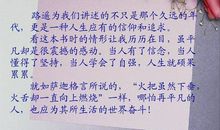 路遥为我们讲述的不只是那个久远的年
代，更是一种人生应有的信仰和追求。
看这本书时的情形让我历历在目，虽平
凡却是很震撼的感动。当人有了信念，当人
懂得了坚持，当人学会了自强，人生就硕果
累累。
就如萨迦格言所说的，“火把虽然下垂，
火舌却一直向上燃烧”一样，哪怕再平凡的
人，也应为其所生活的世界奋斗！